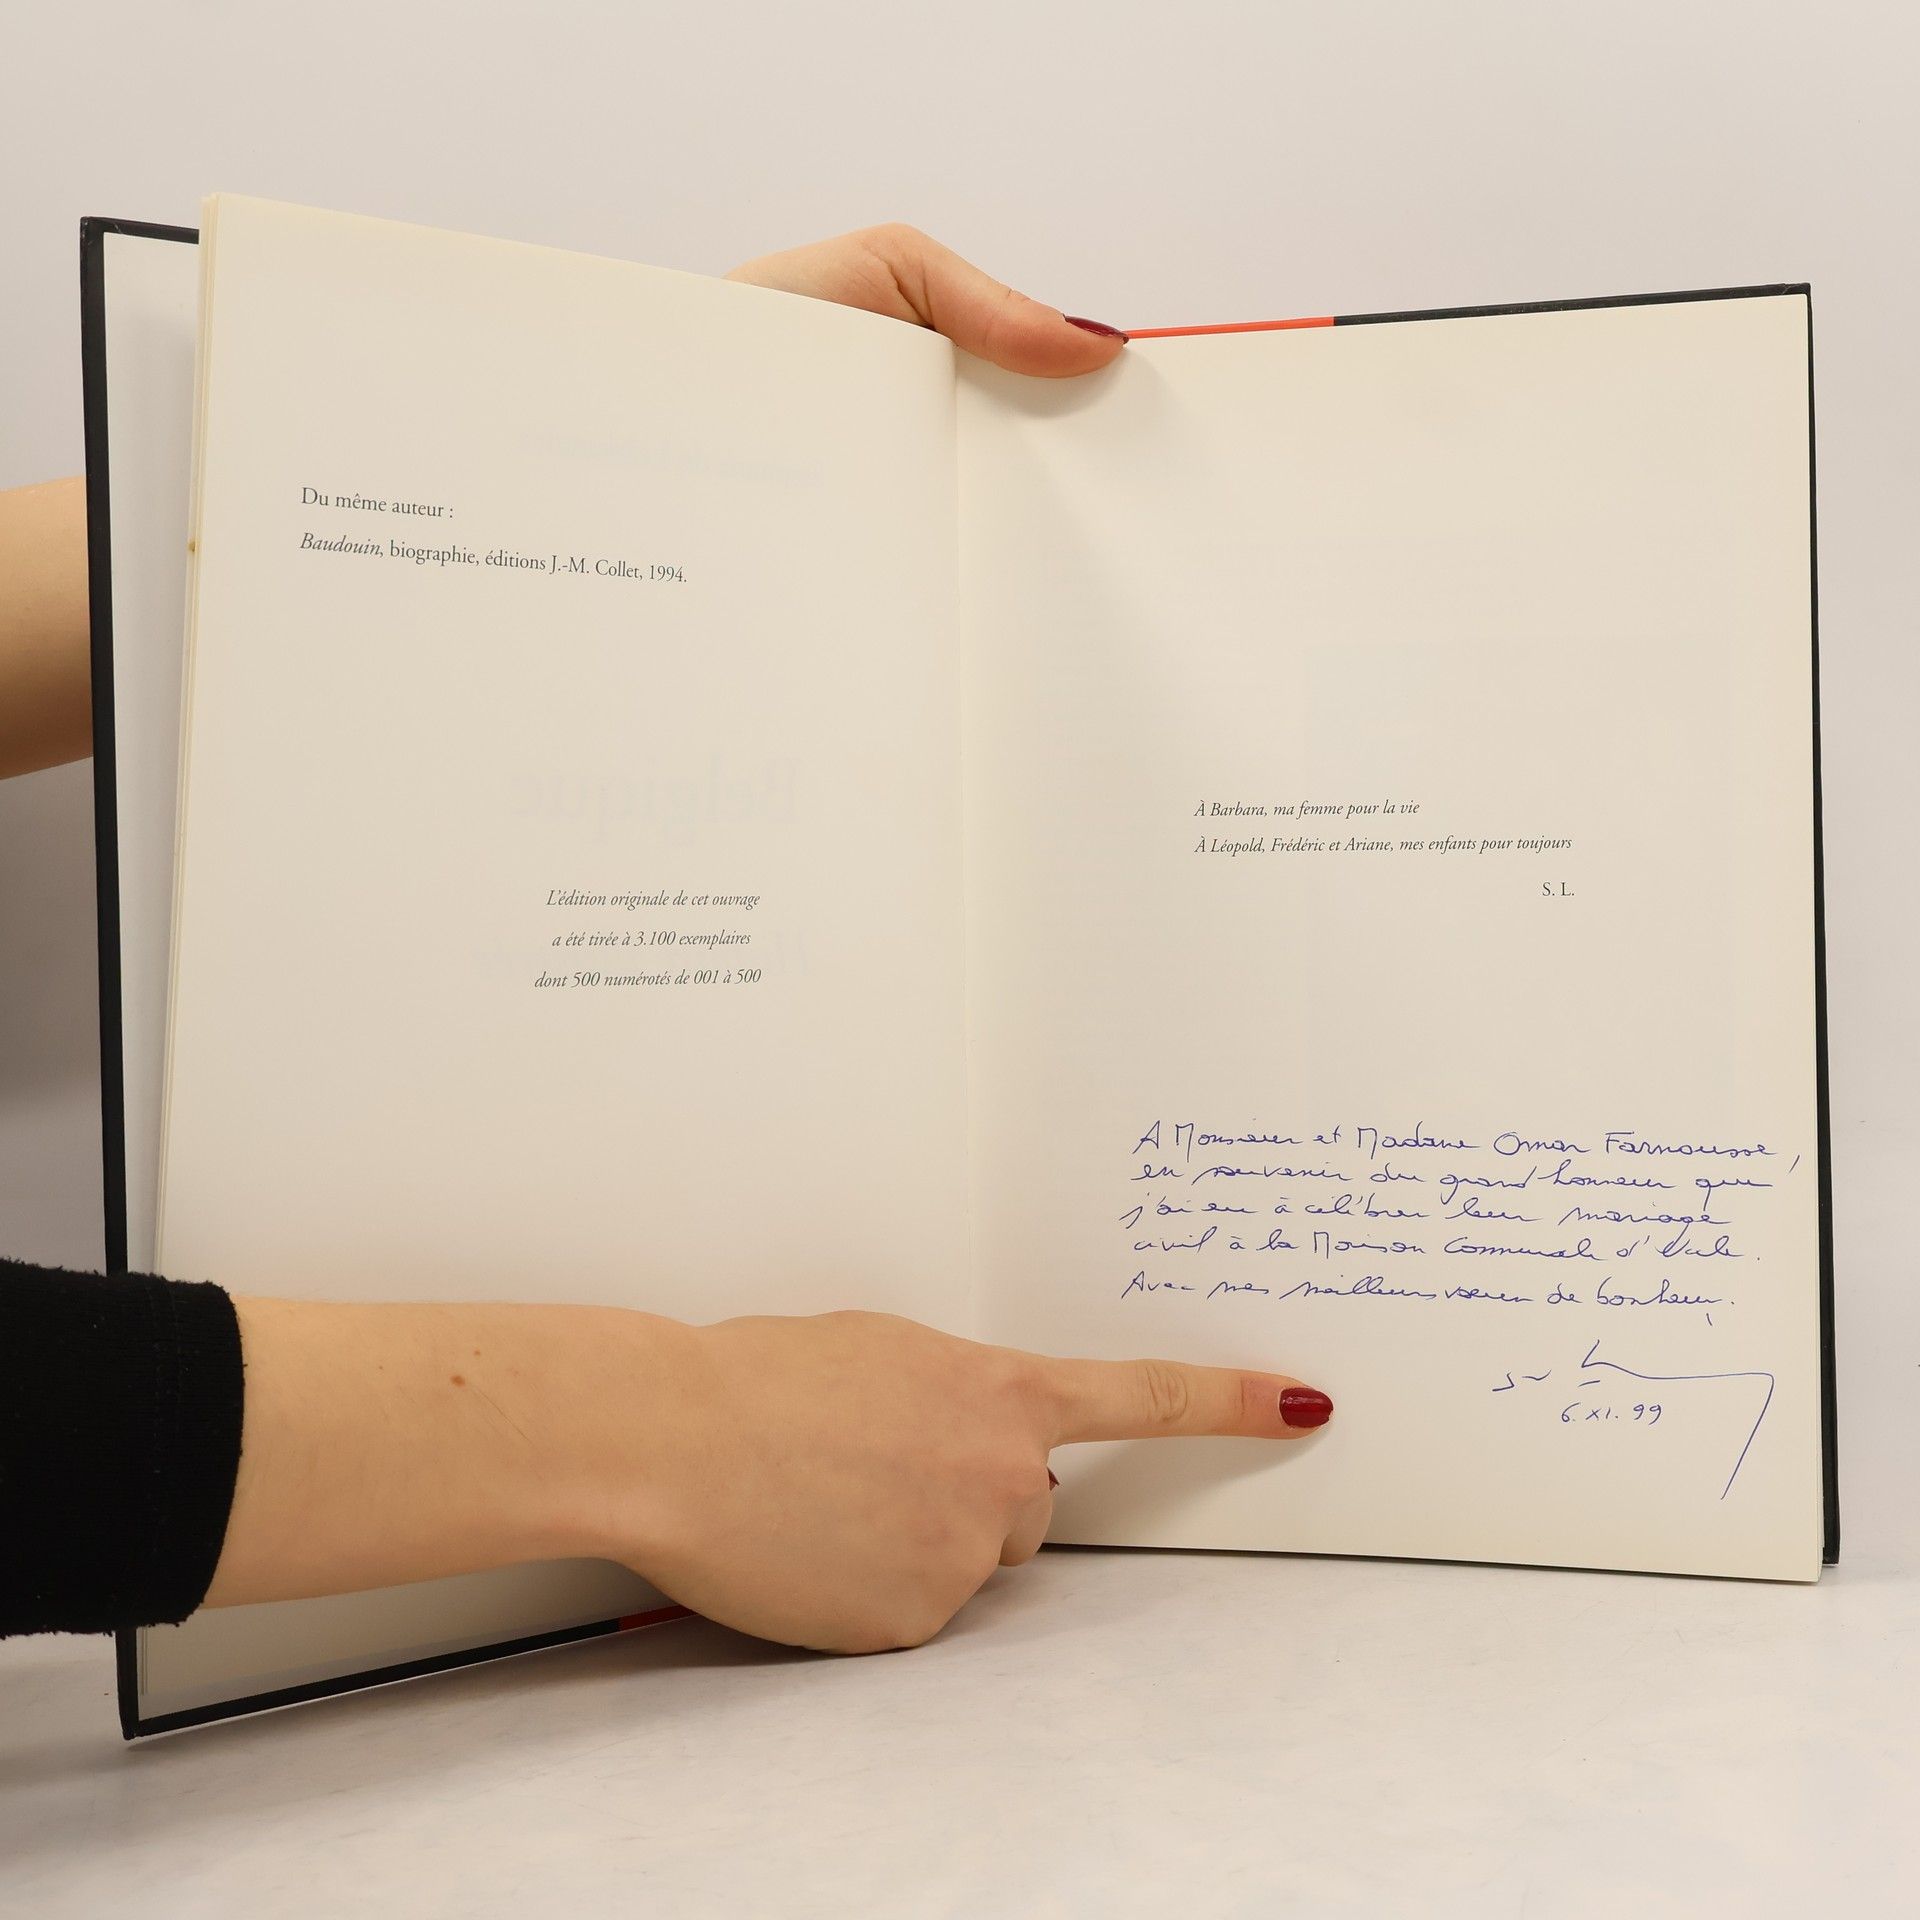 Du même auteur :
Baudouin, biographie, éditions J.-M. Collet, 1994.
L'édition originale de cet ouvrage
a été tirée à 3.100 exemplaires
dont 500 numérotés de 001 à 500
À Barbara, ma femme pour la vie
À Léopold, Frédéric et Ariane, mes enfants pour toujours
S. L.
A Monsieur et Madame Omar Farnousse,
en souvenir du grand honneur que
j'ai eu à célébrer leur mariage
civil à la Maison Communale d'Uccle.
Avec mes meilleurs vœux de bonheur,
6. XI. 99